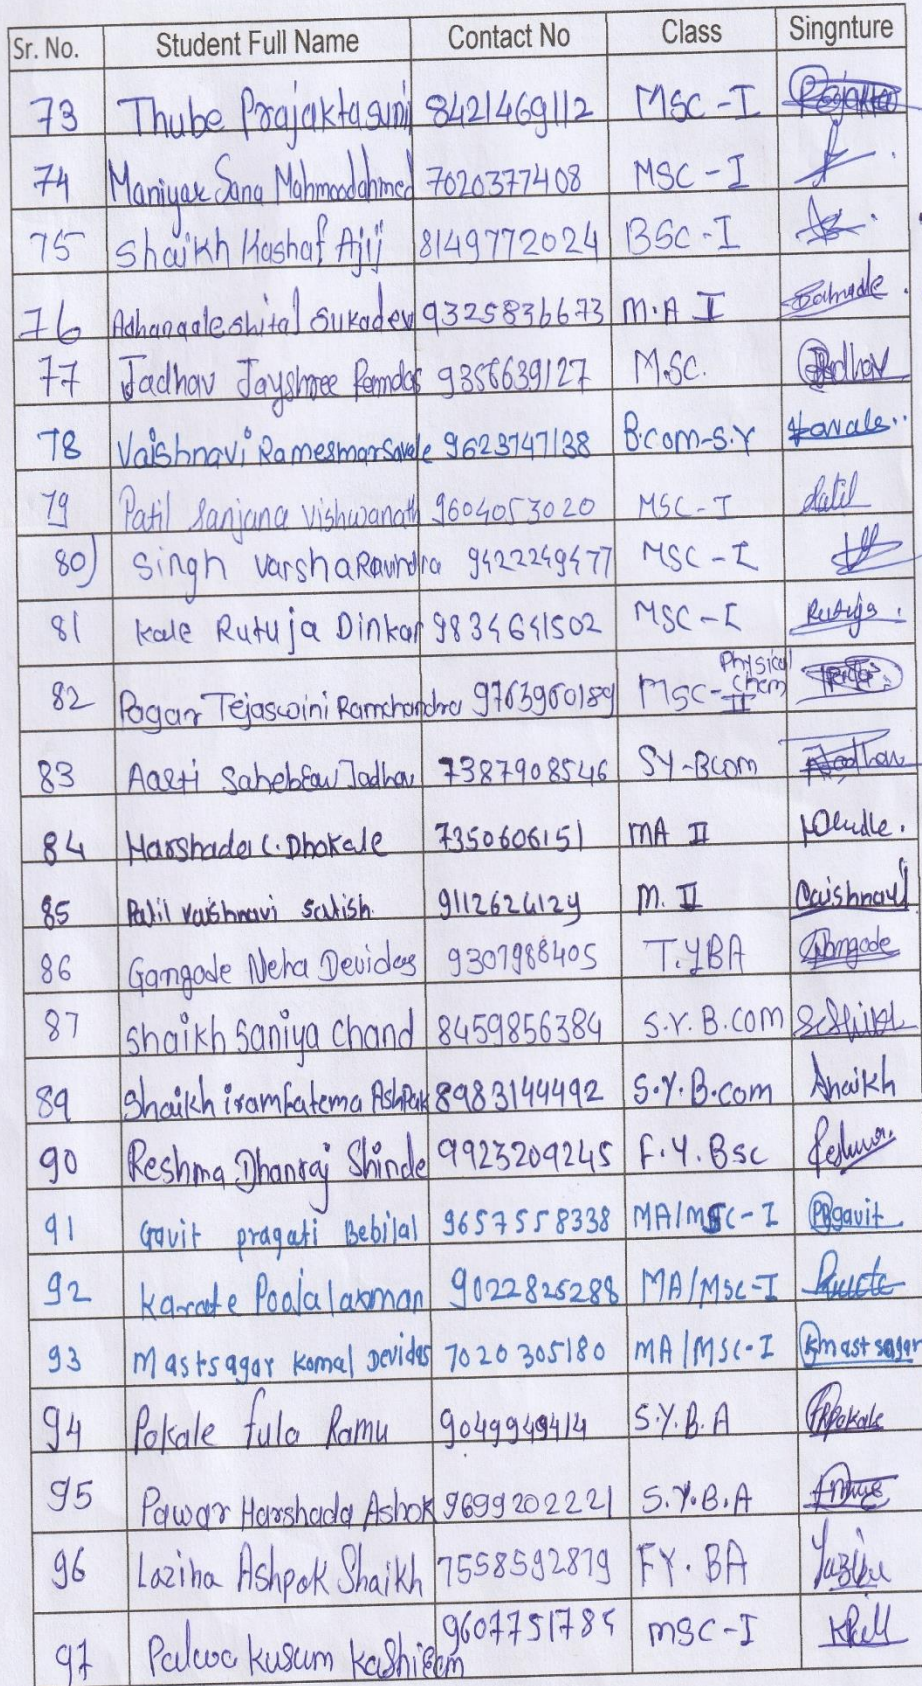 Sr. No. Student Full Name Contact No Class Singnture
73 Thube Prajakta suni 8421469112 MSC-I
74 Maniyar Sana Mahmoodahmed 7020377408 MSC-I
75 Shaikh Kashaf Ajij 8149772024 BSC-I
76 Adhangale shital Sukadev 9325836673 M.A I
77 Jadhav Jayshree Ramdas 9356639127 M.SC. Jadhav
78 Vaishnavi Rameshwar Savale 9623747138 B.COM-S.Y
79 Patil Sanjana Vishwanath 9604053020 MSC-I Patil
80) Singh varsha Ravindra 9422249477 MSC-I
81 Kale Rutuja Dinkar 9834641502 MSC-I Rutuja.
82 Pagar Tejaswini Ramchandra 9763960189 MSC-II Physical Chem
83 Aarti Sahebrav Jadhav 7387908546 SY-BCOM Jadhav
84 Harshada C. Dhokale 7350606151 MA II
85 Patil Vaishnavi Satish. 9112624129 M. II Vaishnavi
86 Gangode Neha Devidas 9307988405 T.YBA Gangode
87 Shaikh Saniya Chand 8459856384 S.Y.B.COM
89 Shaikh iramfatema Ashpak 8983144492 S.Y.B.com Shaikh
90 Reshma Dhanraj Shinde 9923209245 F.Y.Bsc Reshma.
91 Gavit pragati Bebilal 9657558338 MA/MSC-I PBgavit
92 Karate Pooja laxman 9022825288 MA/MSC-I
93 Mastsagar Komal Devidas 7020305180 MA/MSC-I Kmastsagar
94 Pokale fula Ramu 9049949414 S.Y.B.A FRPokale
95 Pawar Harshada Ashok 9699202221 S.Y.B.A
96 Laziha Ashpak Shaikh 7558592879 FY.BA
97 Palwa kusum kashiram 9607751784 MSC-I